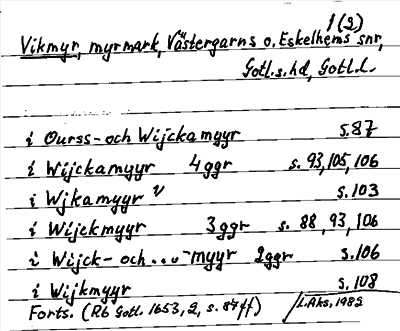 1(2)
Vikmyr, myrmark, Västergarns o. Eskelhems snr,
Gotl.s.hd, Gotl.l.
i Ourss- och Wijckamyyr s.87
i Wijckamyyr 4 ggr s. 93, 105, 106
i Wjkamyyr s.103
i Wijckmyyr 3 ggr s. 88, 93, 106
i Wijck- och ... myyr 2ggr s.106
i Wijkmyyr s.108
Forts. (Rb Gotl. 1653, 2, s. 87 ff) L.Aks, 1982